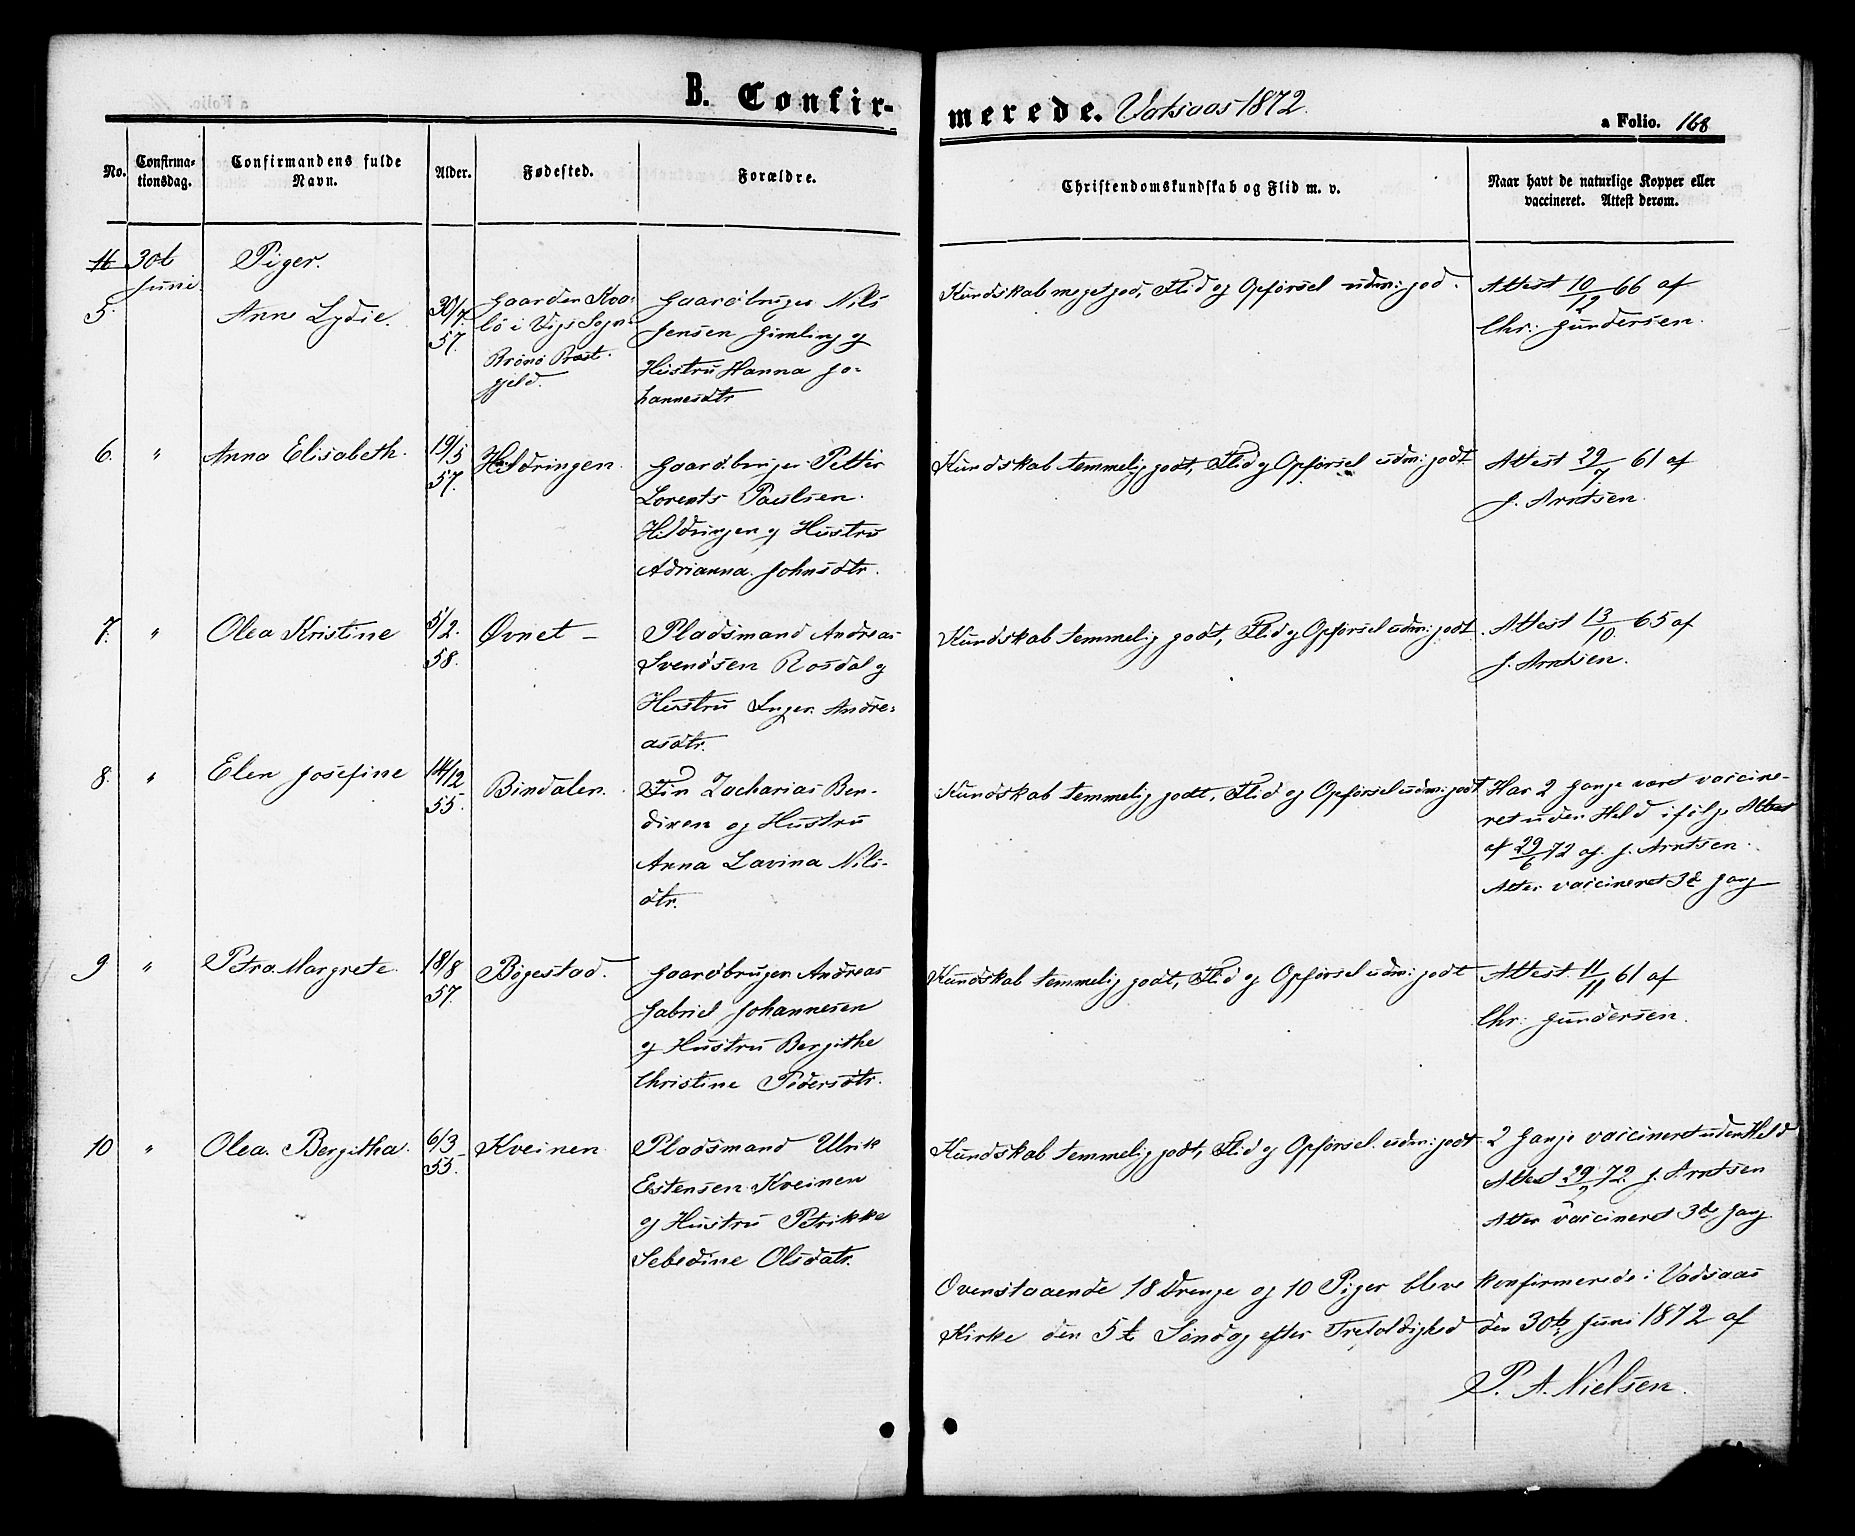 B. Confirmerede. Vatsaas 1872.
a Folio. 168
No.
Confirma-
tionsdag.
Confirmandens fulde
Navn.
Alder.
Fødested.
Forældre.
Christendomskundskab og Flid m. v.
Naar havt de naturlige Kopper eller
vaccineret. Attest derom.
30t
Juni
Piger.
5.
Anne Lydie.
30/7
57.
Gaarden
lö i Vigs Sogn
Brönö Præst-
gjeld.
Gaardbruger Nils
Jensen Gimling og
Hustru Hanna Jo-
hannesdtr
Kundskab meget god, Flid og Opförsel udm: god.
Attest 10/12 66 af
Chr: Gundersen.
6.
"
Anna Elisabeth.
19/5
57.
Hildringen.
Gaardbruger Petter
Lorents Paulsen
Hildringen og Hustru
Adrianna Johnsdtr.
Kundskab temmelig godt, Flid og Opförsel udm: godt.
Attest 29/7 61 af
J. Arntsen.
7.
"
Olea Kristine
5/2.
58.
Øvnet –
Pladsmand Andreas
Svendsen Rosdal og
Hustru Inger Andre-
asdtr.
Kundskab temmelig godt, Flid og Opförsel udm: godt.
Attest 13/10 65 af
J. Arntsen.
8.
"
Elen Josefine
14/12
55.
Bindalen.
Fin Zacharias Ben-
dixen og Hustru
Anna Lavina Nils-
dtr.
Kundskab temmelig godt, Flid og Opförsel udm: godt
Har 2 Gange været vaccine-
ret uden Held ifölge Attest
af 29/6 72 af J. Arntsen.
Atter vaccineret 3d Gang
9
"
Petra Margrete.
18/8
57.
Bögestad.
Gaardbruger Andreas
Gabriel Johannesen
og Hustru Bergithe
Christine Pedersdtr.
Kundskab temmelig godt, Flid og Opförsel udm: godt
Attest 11/11 61 af
Chr: Gundersen.
10
"
Olea Bergitha.
6/3
55.
Kveinen
Pladsmand Ulrik
Estensen Kveinen
og Hustru Petrikke
Sebedine Olsdatr.
Kundskab temmelig godt, Flid og Opförsel udm: godt.
2 Gange vaccineret uden Held
Attest 29/2 72. J. Arntsen
Atter vaccineret 3de Gang
Ovenstaaende 18 Drenge og 10 Piger bleve konfirmerede i Vadsaas
Kirke den 5t Söndag efter Trefoldighed den 30te Juni 1872 af
P. A. Nielsen.